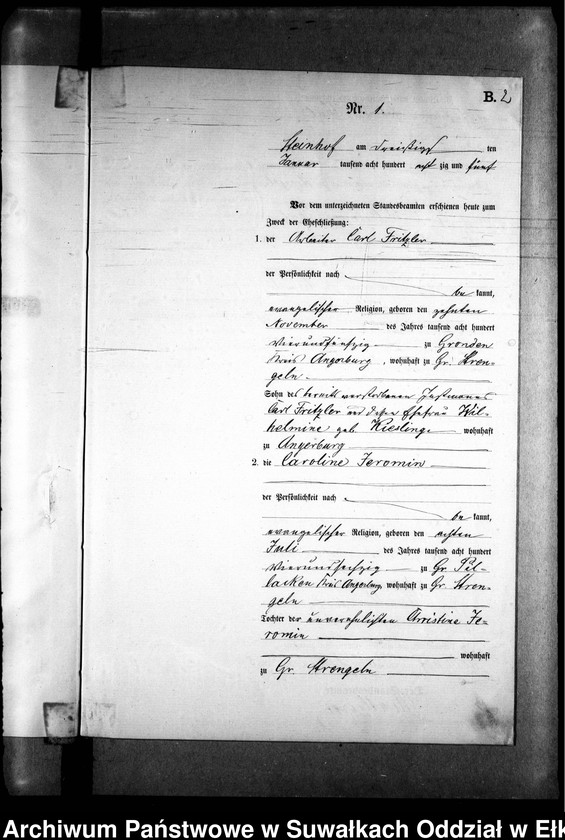 B. 2
Nr. 1.
Steinhof am dreißigs ten
Januar tausend acht hundert acht zig und fünf
Vor dem unterzeichneten Standesbeamten erschienen heute zum
Zweck der Eheschließung:
1. der Arbeiter Carl Fritzler
der Persönlichkeit nach
be kannt,
evangelischer Religion, geboren den zehnten
November des Jahres tausend acht hundert
vierundsechzig zu Gronden
Kreis Angerburg, wohnhaft zu Gr. Stren-
geln
Sohn des bereits verstorbenen Instmannes
Carl Fritzler und dessen Ehefrau Wil-
helmine geb. Kieslinge wohnhaft
zu Angerburg
2. die Caroline Jeromin
der Persönlichkeit nach
be kannt,
evangelischer Religion, geboren den achten
Juli des Jahres tausend acht hundert
vierundsechzig zu Gr. Pil-
lacken Kreis Angerburg, wohnhaft zu Gr. Stren-
geln
Tochter der unverehelichten Christine Je-
romin
wohnhaft
zu Gr. Strengeln
Archiwum Państwowe w Suwałkach Oddział w Ełk